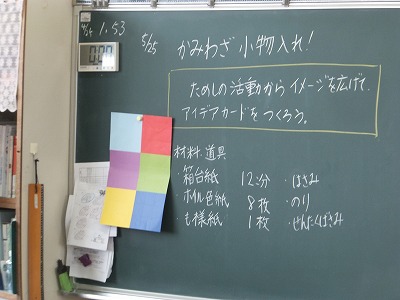 4/24 1.53
0:00
5/25 かみわざ小物入れ!
たのしの活動からイメージを広げて、
アイデアカードをつくろう。
材料・道具
・箱台紙 12分 ・はさみ
・ホイル色紙 8枚 ・のり
・も様紙 1枚 ・せんたくばさみ